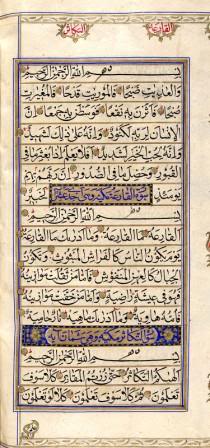 القارعة التكاثر
بسم الله الرحمن الرحيم
والعاديات ضبحا فالموريات قدحا فالمغيرات
صبحا فأثرن به نقعا فوسطن به جمعا ان
الانسان لربه لكنود وانه على ذلك لشهيد
وانه لحب الخير لشديد افلا يعلم اذا بعثر ما فى
القبور وحصل ما فى الصدور ان ربهم بهم
يومئذ لخبير
بسم الله الرحمن الرحيم
القارعة ما القارعة وما ادريك ما القارعة
يوم يكون الناس كالفراش المبثوث وتكون
الجبال كالعهن المنفوش فاما من ثقلت موازينه
فهو فى عيشة راضية واما من خفت موازينه
فامه هاوية وما ادريك ماهيه نار حامية
سورة التكاثر
بسم الله الرحمن الرحيم
الهيكم التكاثر حتى زرتم المقابر كلا سوف
تعلمون ثم كلا سوف تعلمون كلا لو تعلمون